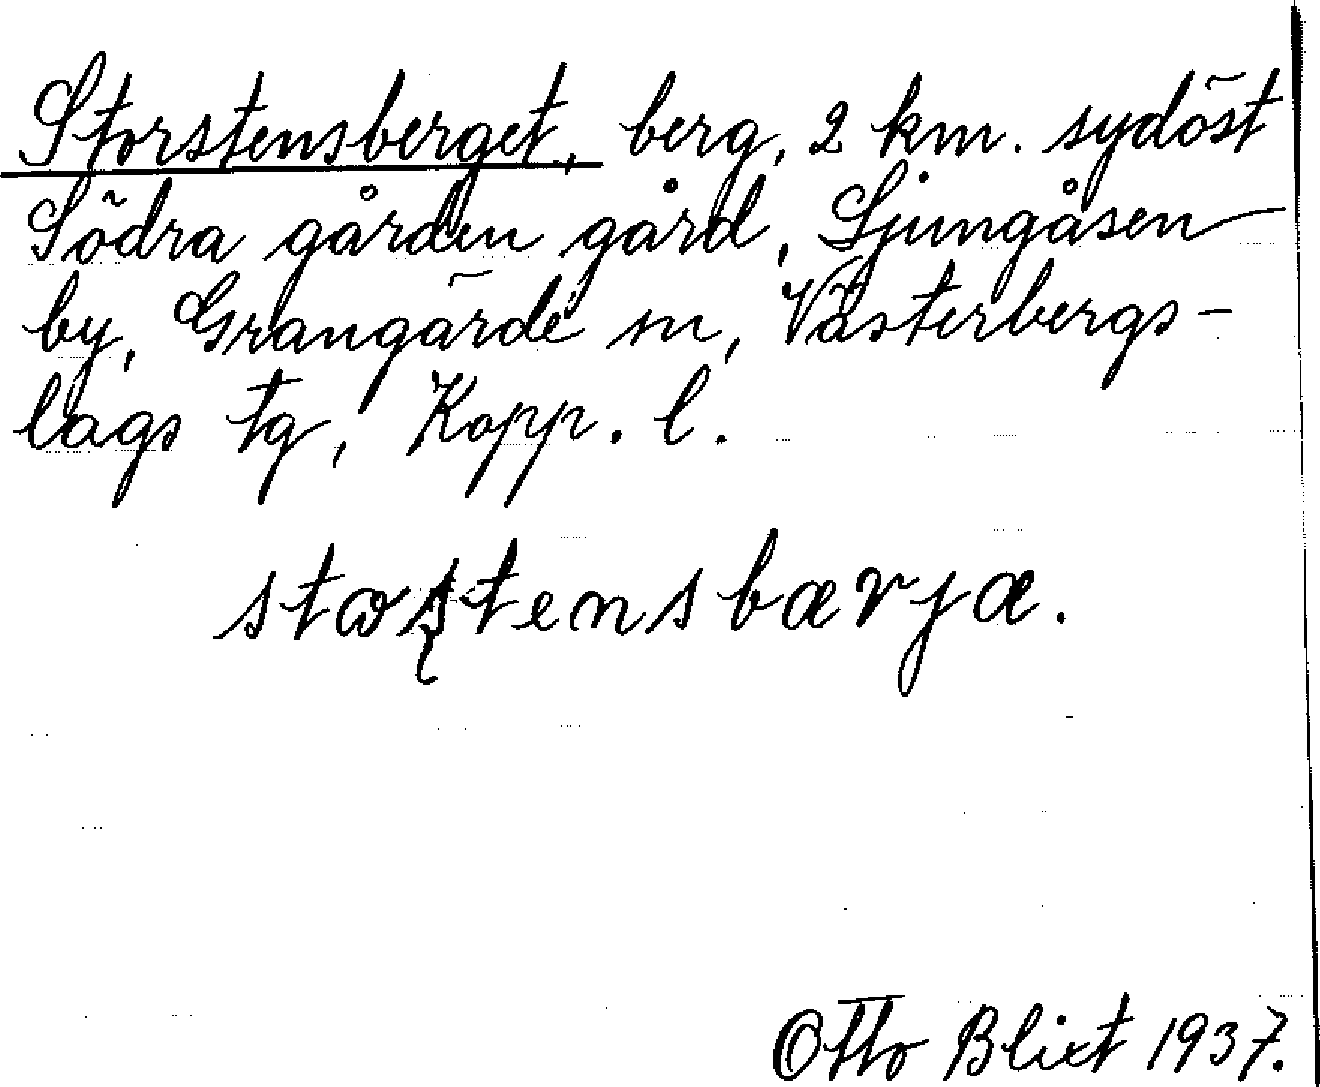 Storstensberget, berg, 2 km. sydöst
Södra gården gård, Ljungåsen
by, Grangärde sn, Västerbergs-
lags tg, Kopp. l.
stɷʂtensbærjæ.
Otto Blixt 1937.